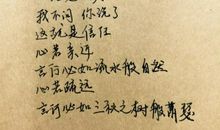 我不问 你说了
这就是信任
心若亲近
言行必如流水般自然
心若疏远
言行必如三秋之树般萧瑟